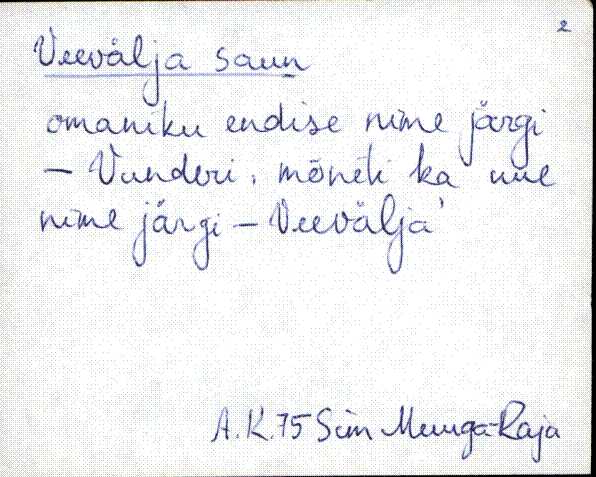 2
Veevälja saun
omaniku endise nime järgi
- Vunderi, mõneti ka uue
nime järgi - Veevälja'
A.K. 75 Sim Muuga-Raja